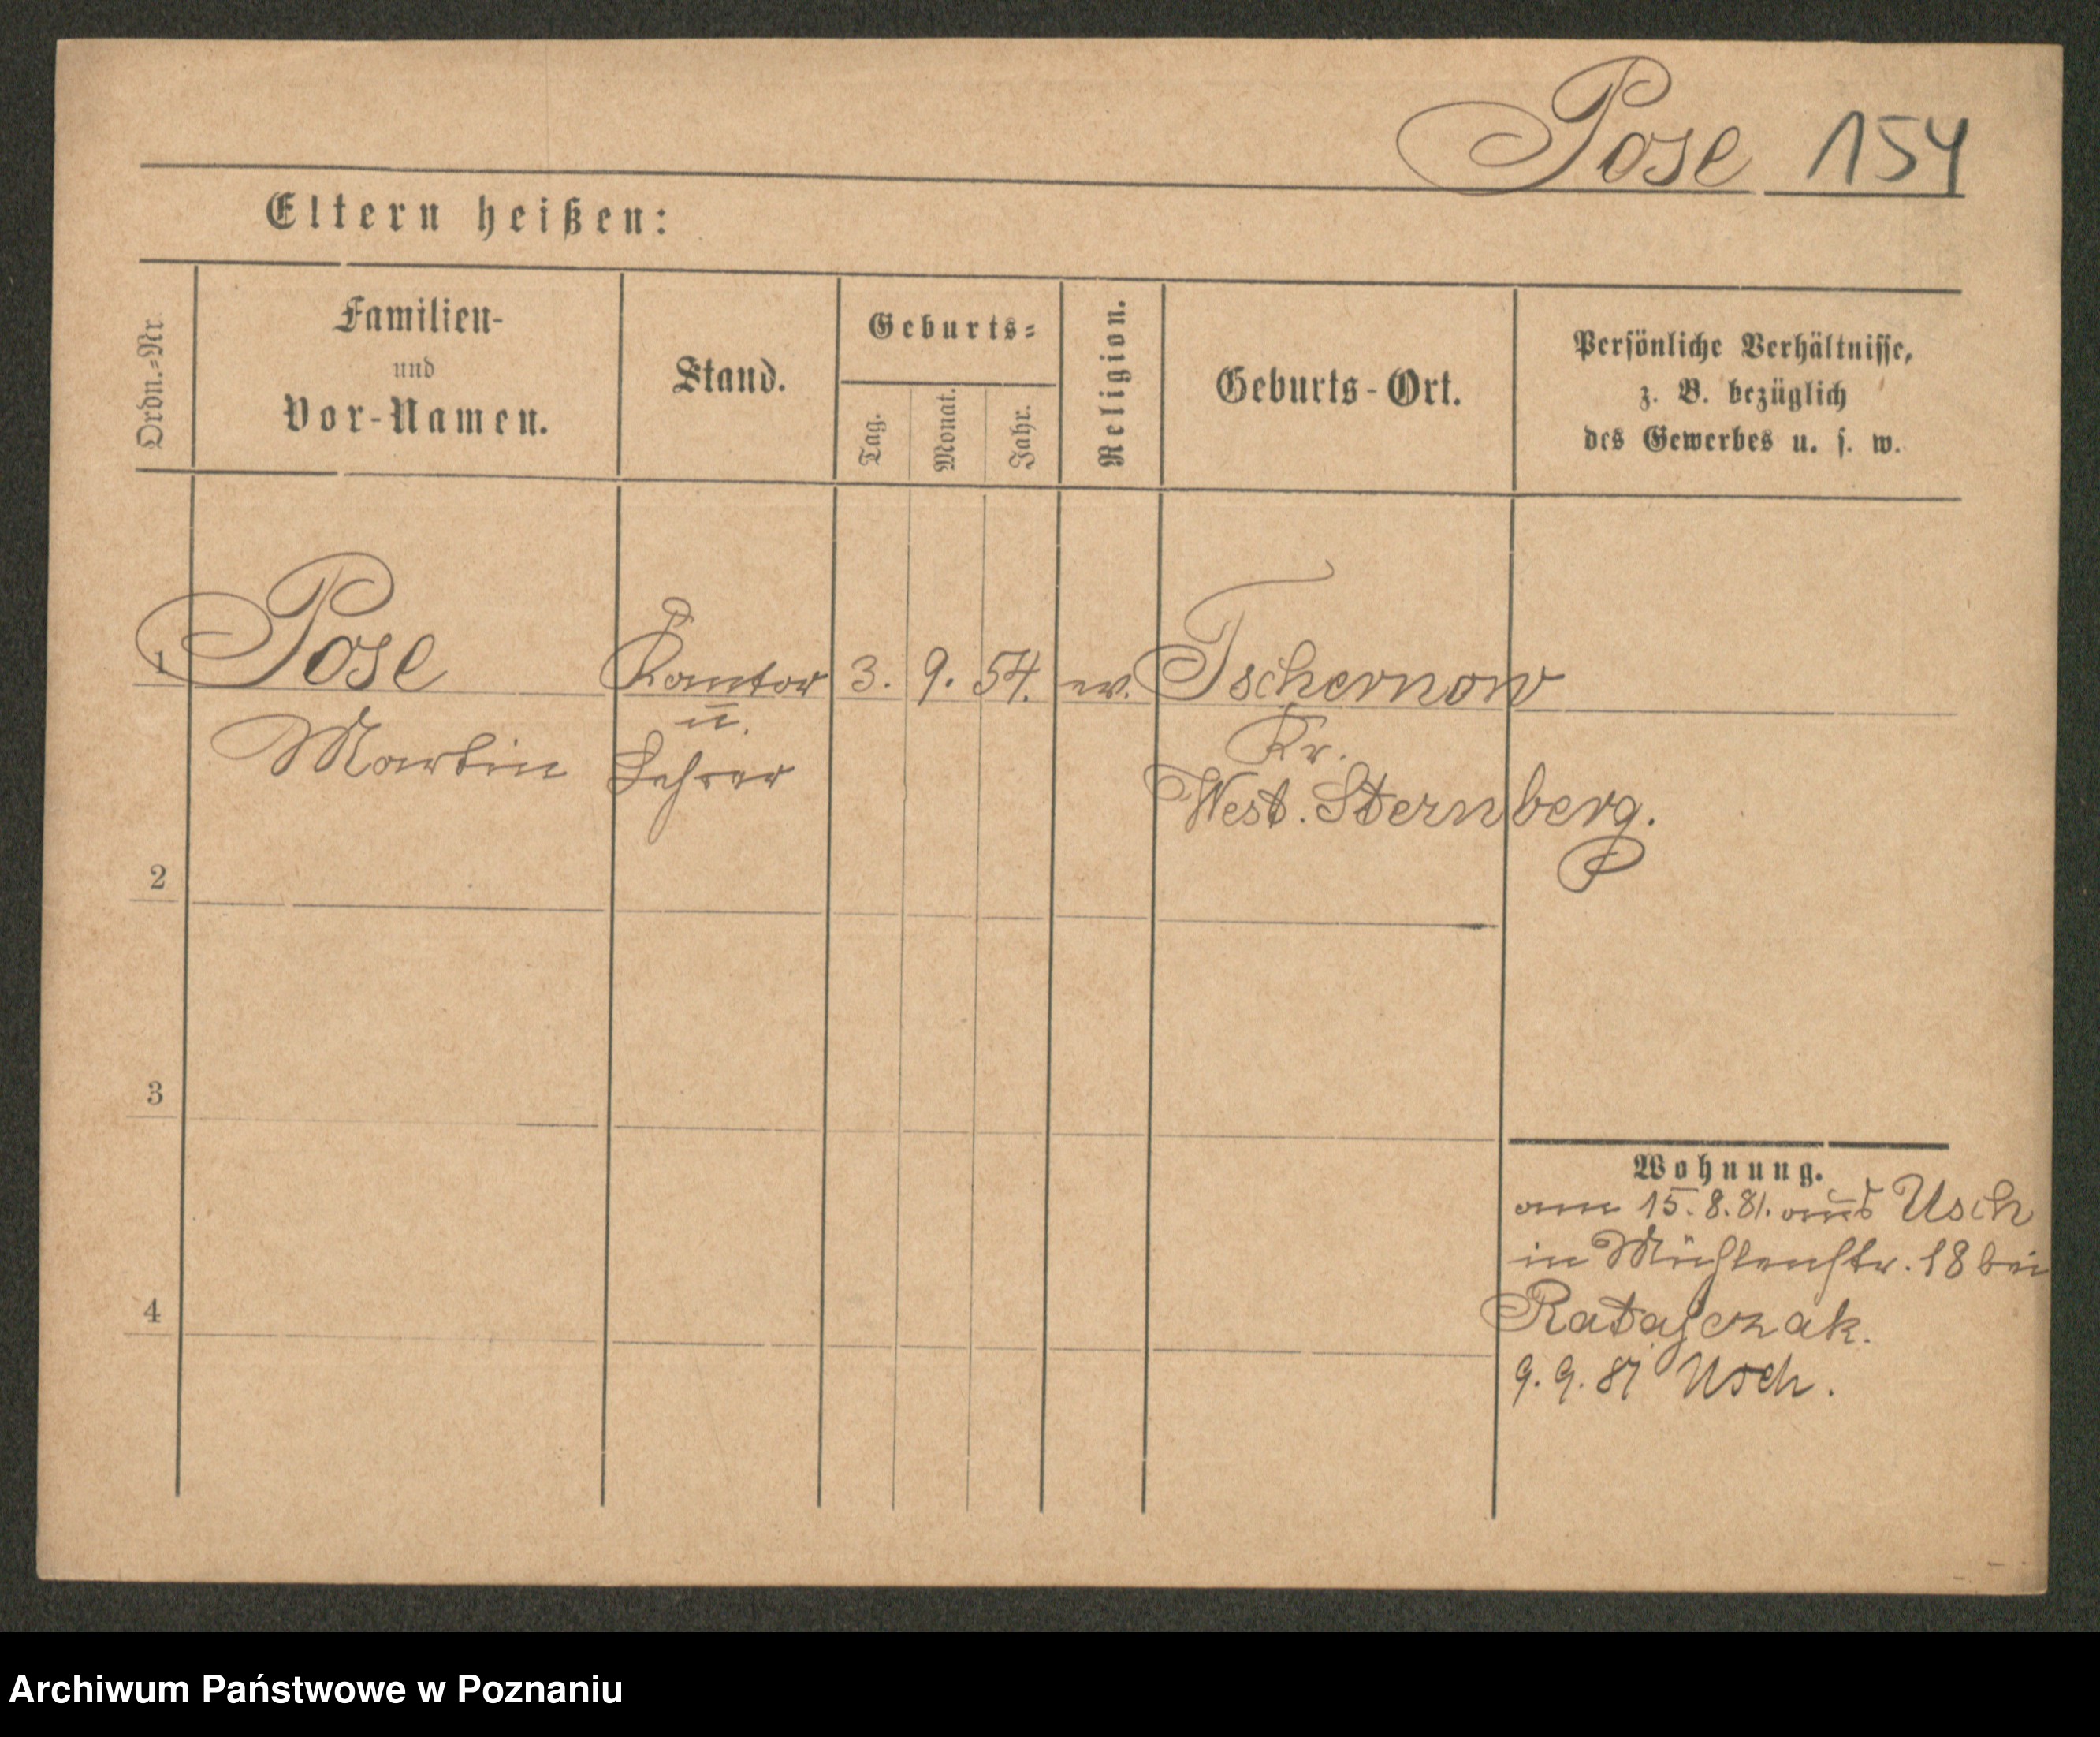 Pose 154
Eltern heißen:
Ordn.-Nr.
Familien-
und
Vor-Namen.
Stand.
Geburts-
Tag.
Monat.
Jahr.
Religion.
Geburts-Ort.
Persönliche Verhältnisse,
z. B. bezüglich
des Gewerbes u. s. w.
1 Pose Kantor 3. 9. 54. ev. Tschernow
u. Kr.
Martin Lehrer West. Sternberg.
2
3
4
Wohnung.
am 15.8.81. aus Usch
in Mühlenstr. 18 bei
Ratajczak.
9.9.81 Usch.
Archiwum Państwowe w Poznaniu